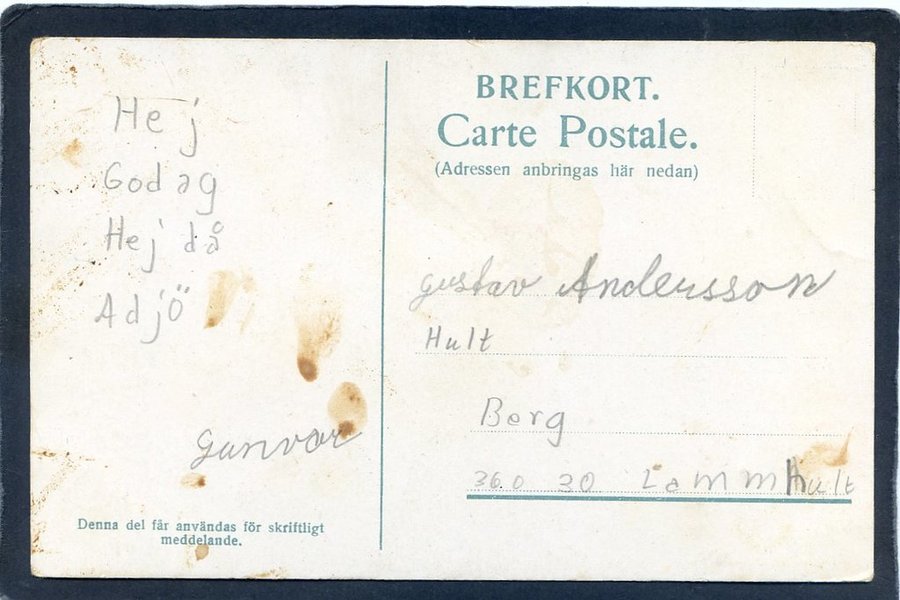 Hej
Godag
Hej då
Adjö
Gunvor
Denna del får användas för skriftligt
meddelande.
BREFKORT.
Carte Postale.
(Adressen anbringas här nedan)
Gustav Andersson
Hult
Berg
360 30 Lammhult